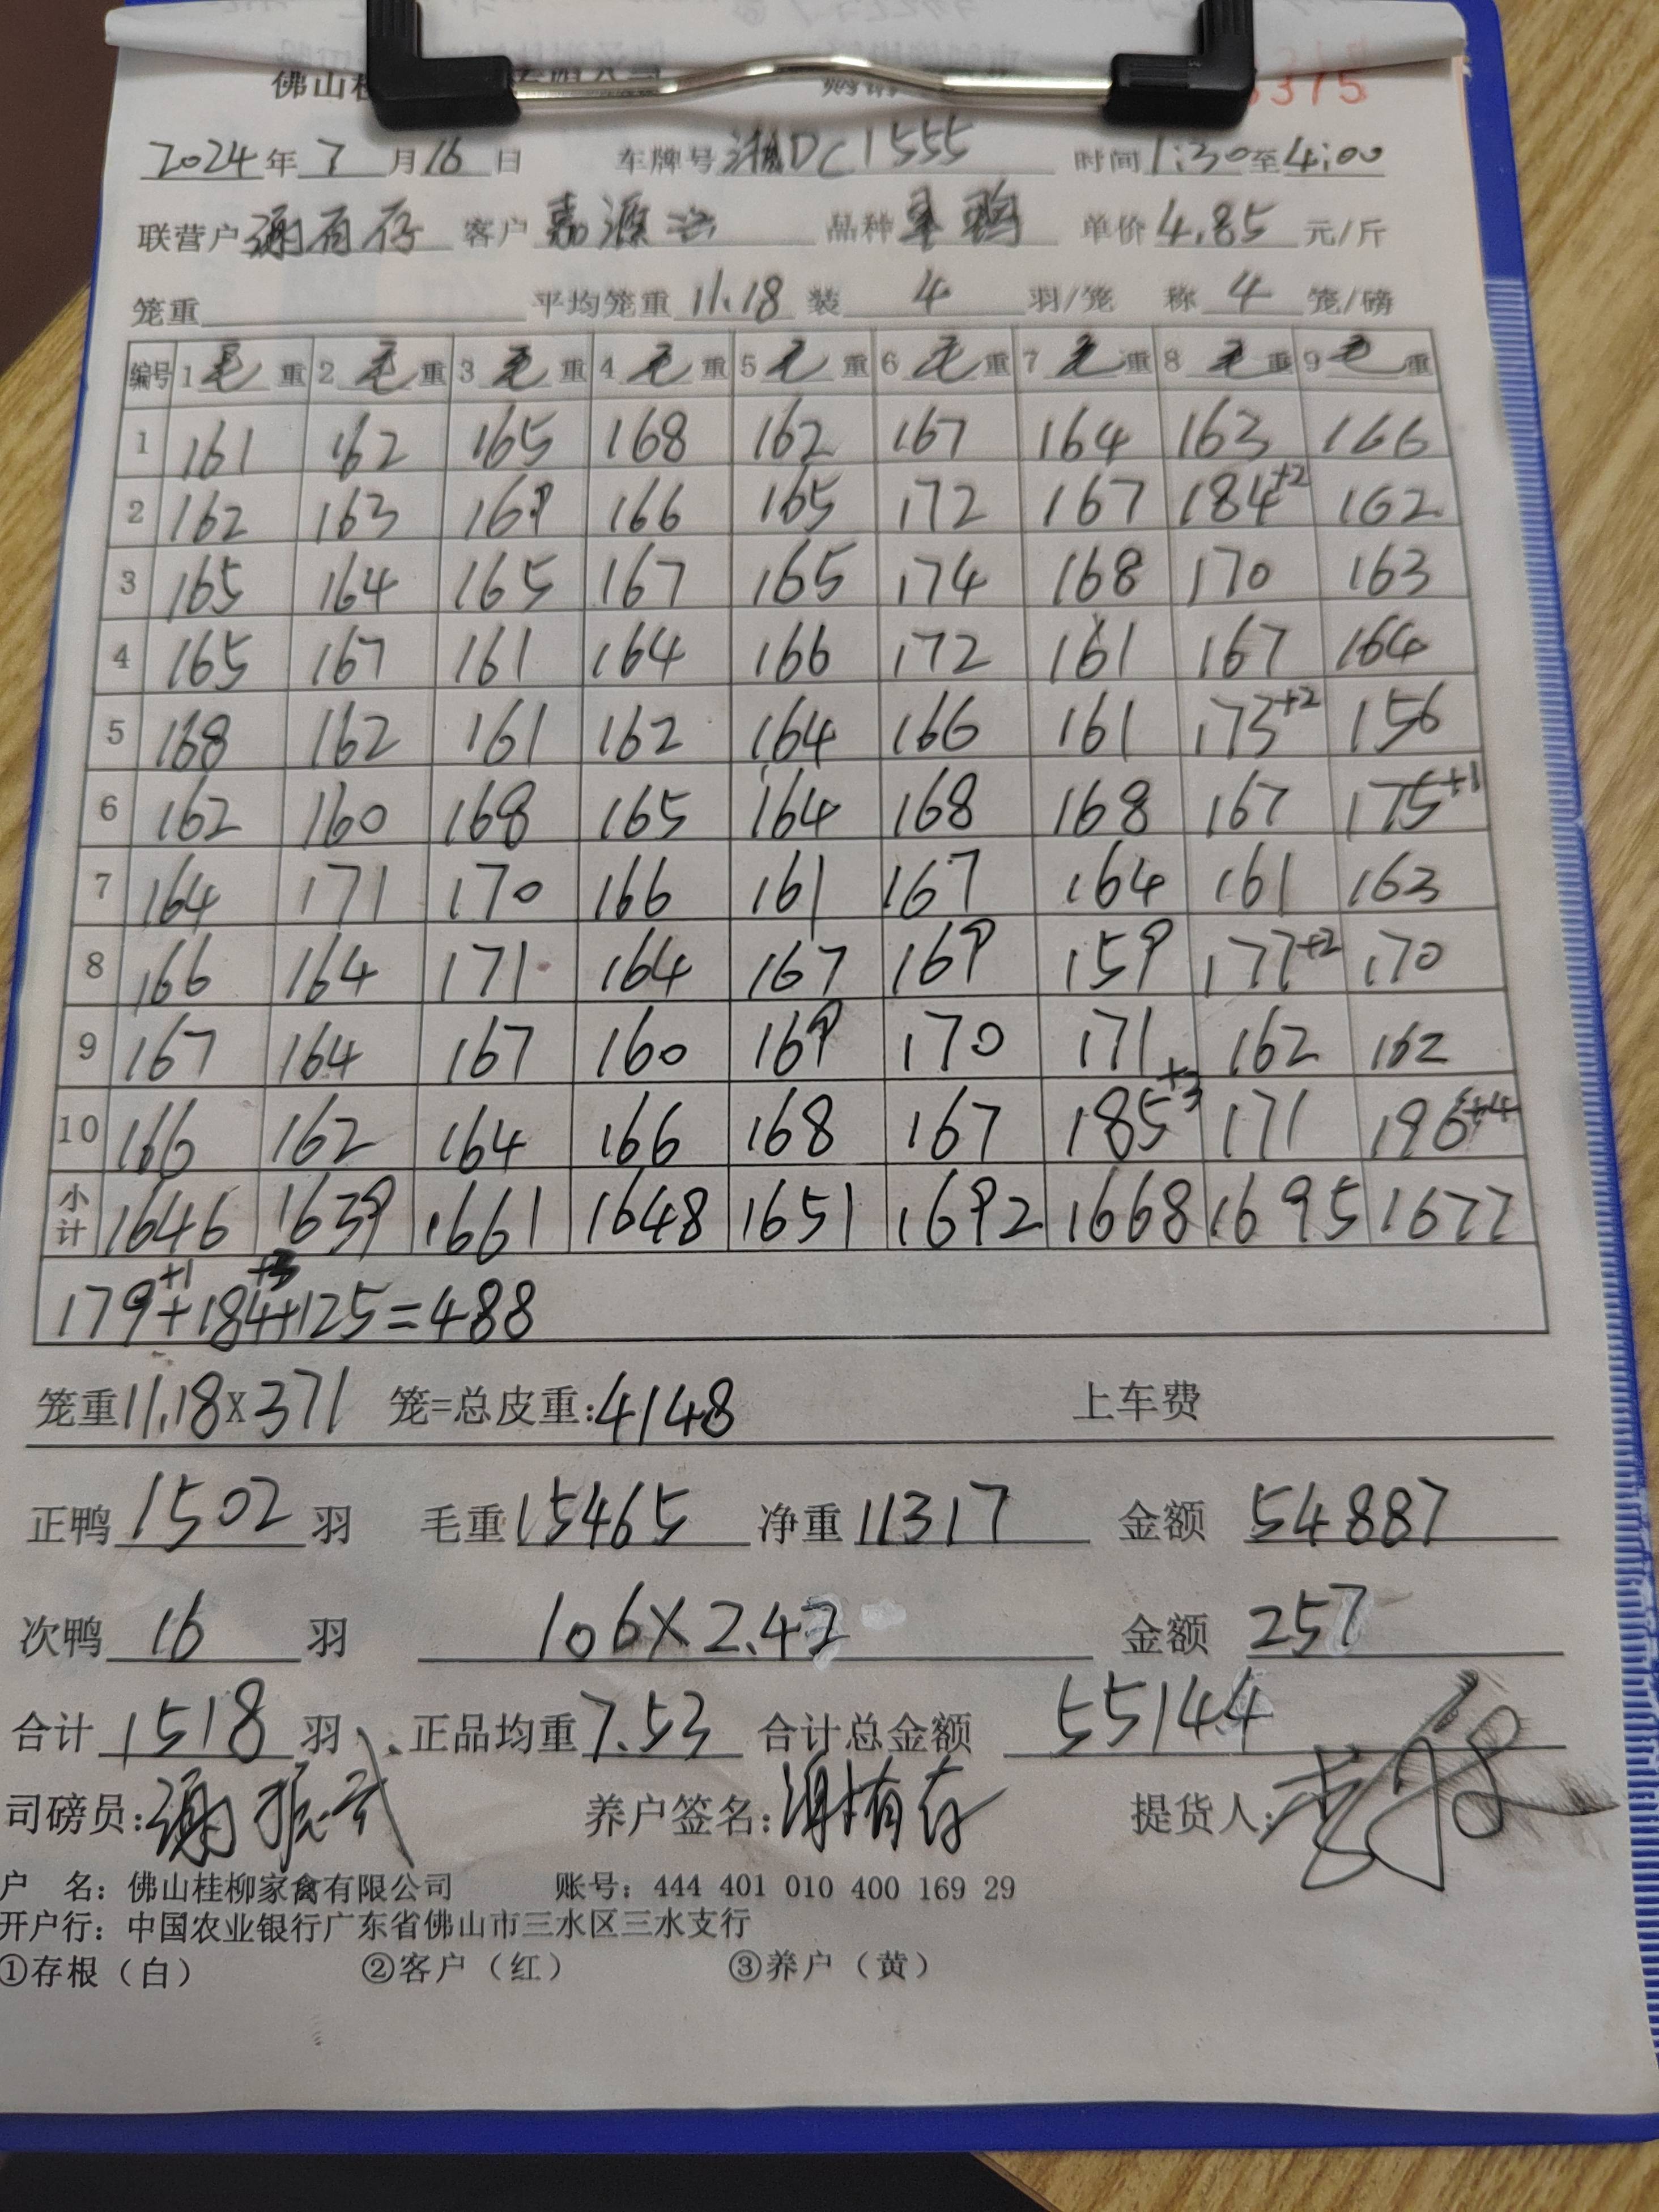 佛山桂
3375
2024年7月16日 车牌号 湘DC1555 时间1:30至4:00
联营户 谢有存 客户 嘉源 品种 单价4.85元/斤
笼重 平均笼重 11.18 装 4 羽/笼 称 4 笼/磅
编号 1毛重 2毛重 3毛重 4毛重 5毛重 6毛重 7毛重 8毛重 9毛重
1 161 162 165 168 162 167 164 163 166
2 162 163 169 166 165 172 167 184+2 162
3 165 164 165 167 165 174 168 170 163
4 165 167 161 164 166 172 161 167 164
5 168 162 161 162 164 166 161 173+2 156
6 162 160 168 165 164 168 168 167 175+1
7 164 171 170 166 161 167 164 161 163
8 166 164 171 164 167 169 159 177+2 170
9 167 164 167 160 169 170 171 162 162
10 166 162 164 166 168 167 185+3 171 196+4
小计 1646 1639 1661 1648 1651 1692 1668 1695 1677
179+1+184+3+125=488
笼重11.18x371 笼=总皮重:4148 上车费
正鸭1502羽 毛重15465 净重11317 金额 54887
次鸭 16 羽 106×2.42 金额 257
合计1518羽 正品均重7.53 合计总金额 55144
司磅员:谢振武 养户签名:谢有存 提货人:
户 名:佛山桂柳家禽有限公司 账号:444 401 010 400 169 29
开户行:中国农业银行广东省佛山市三水区三水支行
①存根(白) ②客户(红) ③养户(黄)